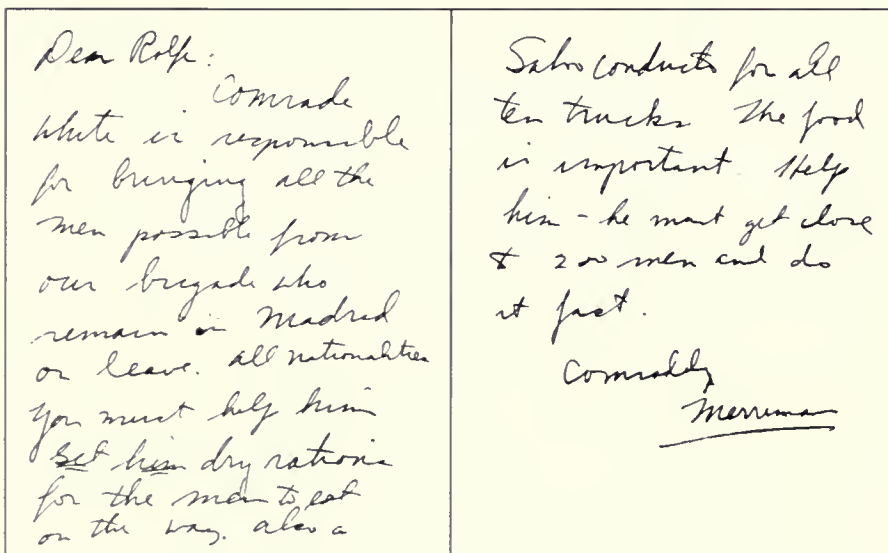 Dear Rolfe:
Comrade
White is responsible
for bringing all the
men possible from
our brigade who
remain in Madrid
on leave. all nationalities
You must help him
Get him dry rations
for the men to eat
on the way. also a
Salvo conducts for all
ten trucks The food
is important Help
him - he must get close
to 200 men and do
it fast.
Comradely
Merriman